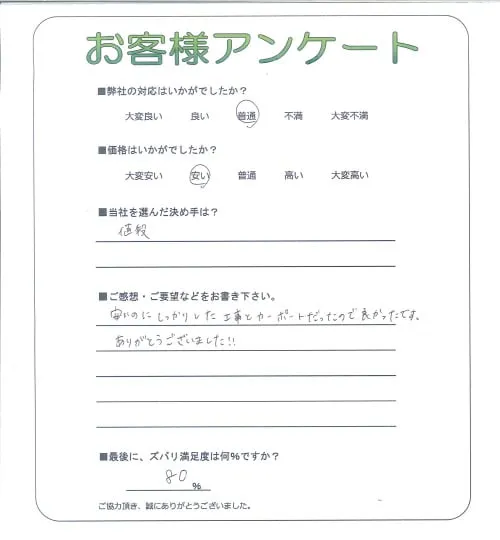 お客様アンケート
■弊社の対応はいかがでしたか？
大変良い 良い 普通 不満 大変不満
■価格はいかがでしたか？
大変安い 安い 普通 高い 大変高い
■当社を選んだ決め手は？
値段
■ご感想・ご要望などをお書き下さい。
安いのにしっかりした工事とカーポートだったので良かったです。
ありがとうございました!!
■最後に、ズバリ満足度は何%ですか？
80 %
ご協力頂き、誠にありがとうございました。